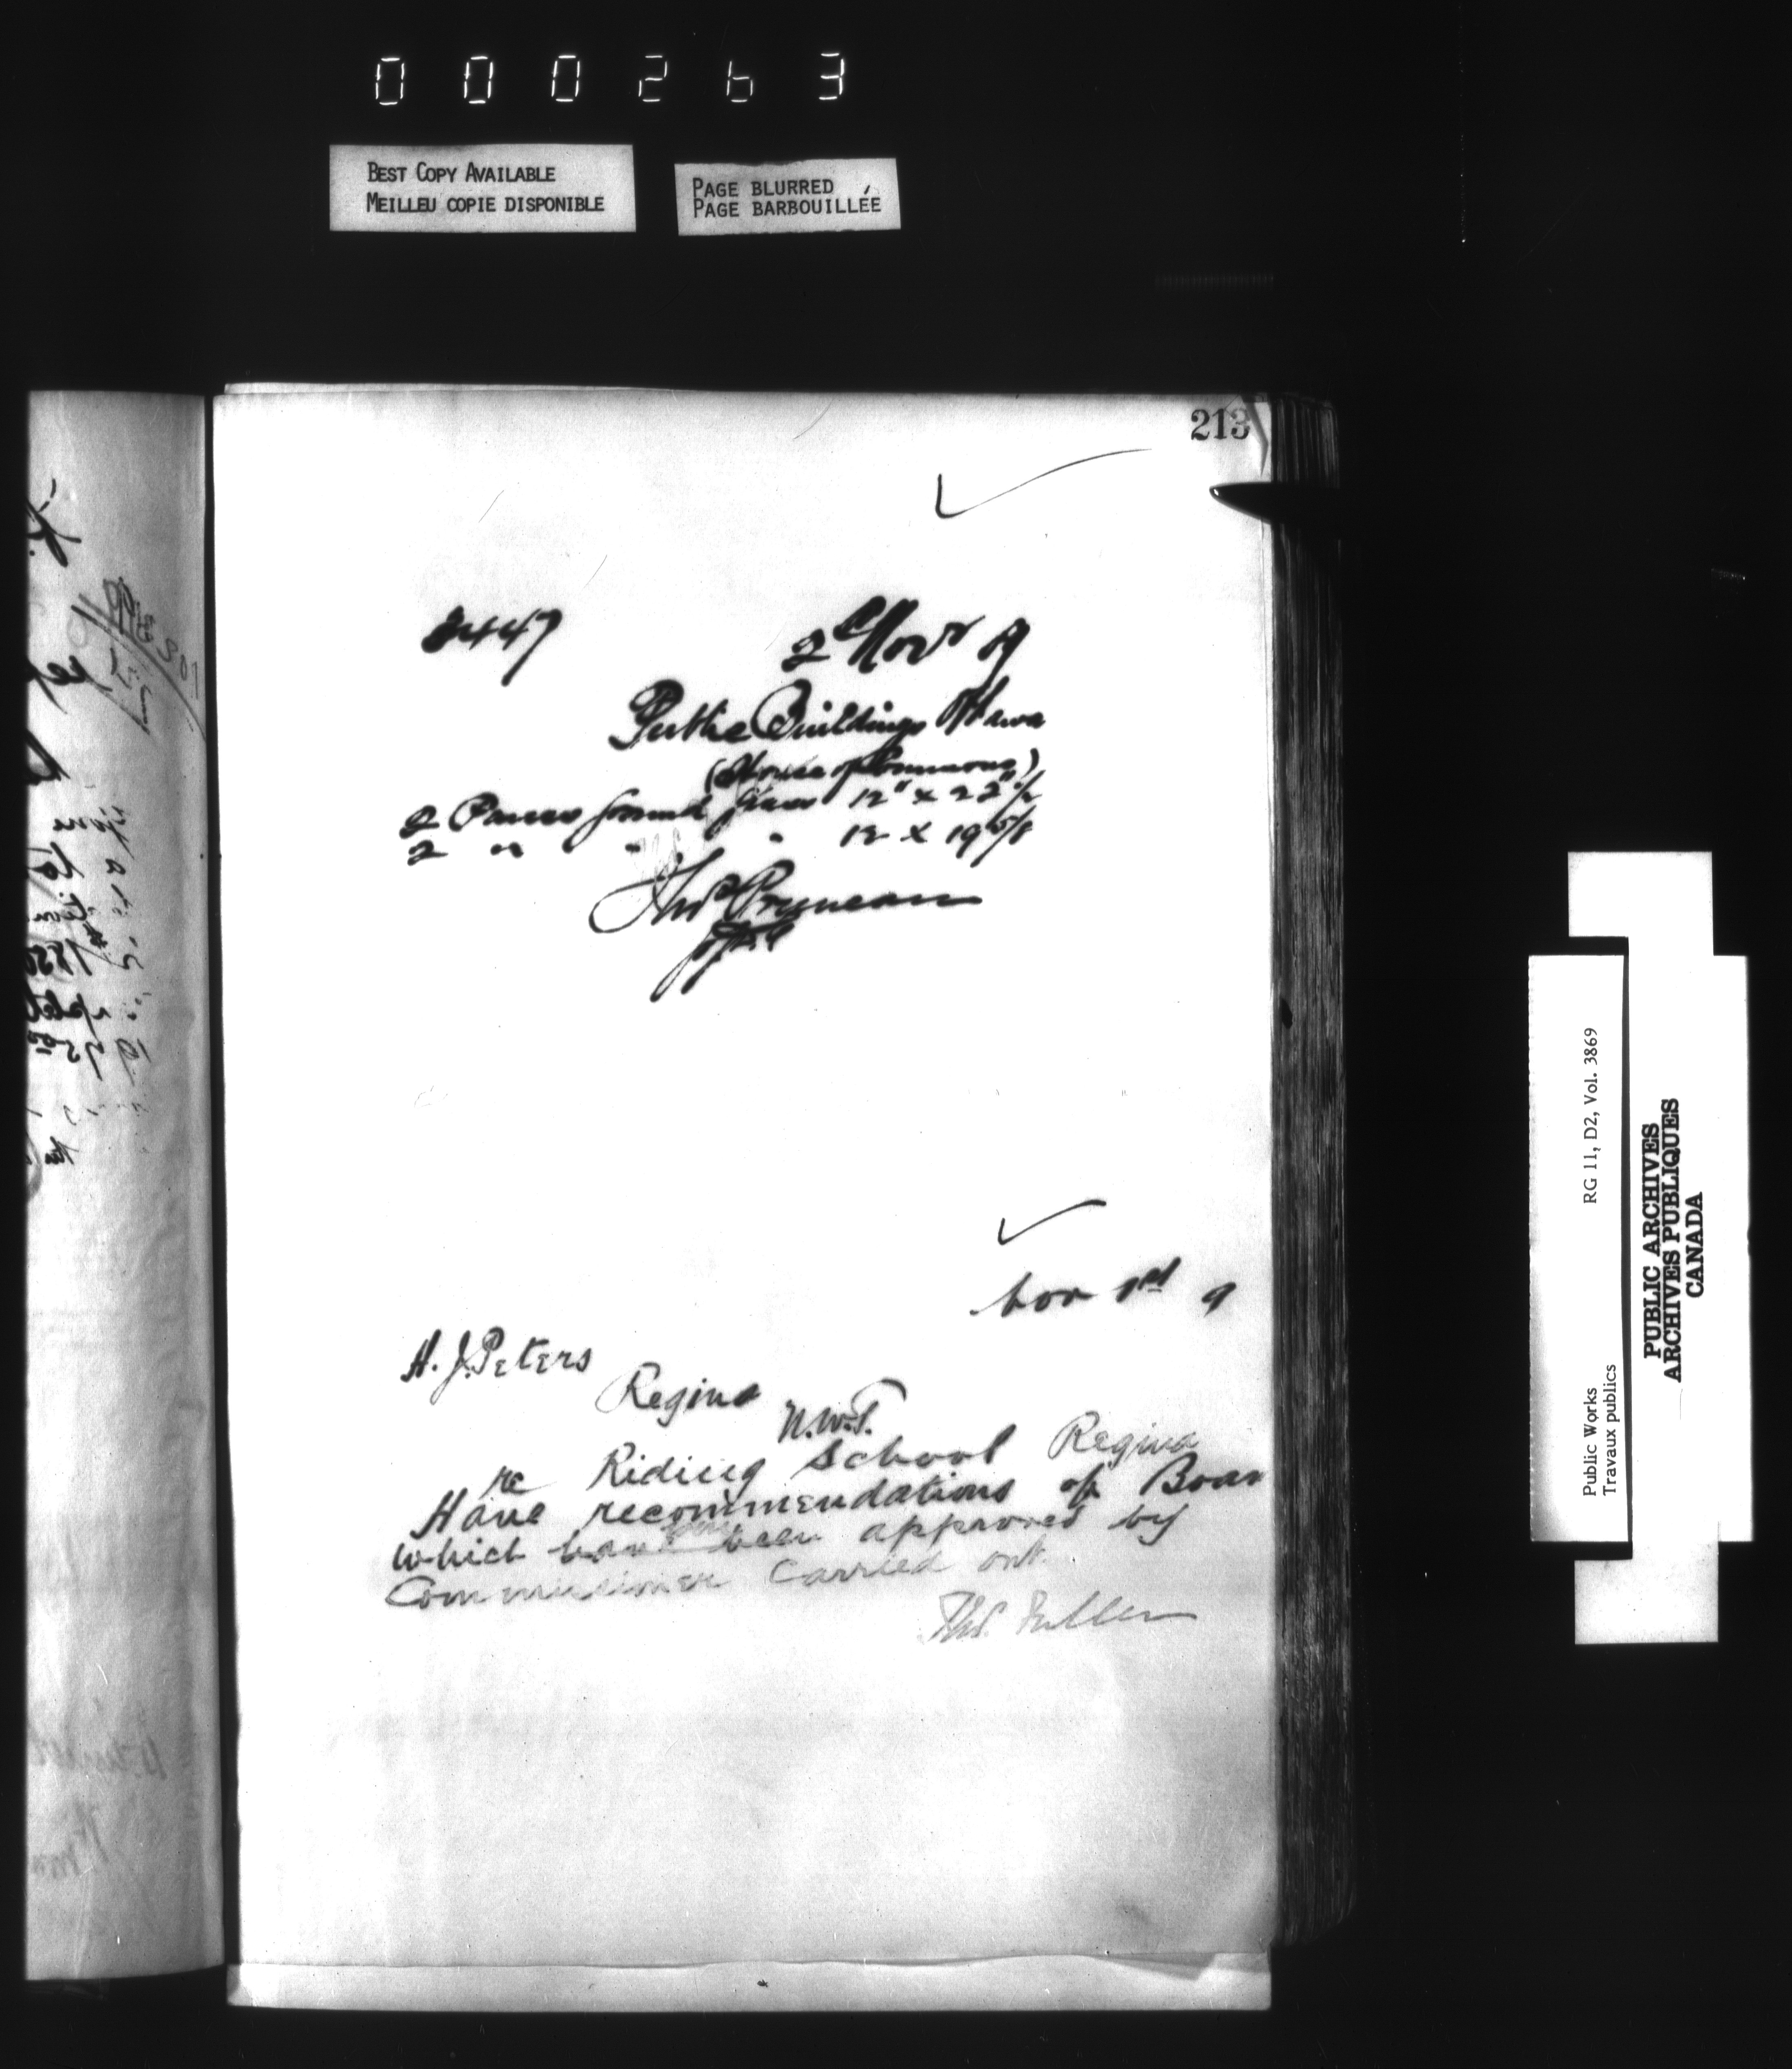 000263
BEST COPY AVAILABLE
MEILLEU COPIE DISPONIBLE
PAGE BLURRED
PAGE BARBOUILLÉE
213
3447
2d Novr 9
Public Buildings Ottawa
(House of Commons)
2 Panes Ground Glass 12" x 22" 1/2
2 " " " 12 x 19 5/8
Thos
Nov 1st 9
H. J. Peters
Regina
N.W.T.
re Riding School Regina
Have recommendations of Boar
which have been approved by
Commissioner carried out
Thos. Fuller
Public Works
Travaux publics
RG 11, D2, Vol. 3869
PUBLIC ARCHIVES
ARCHIVES PUBLIQUES
CANADA